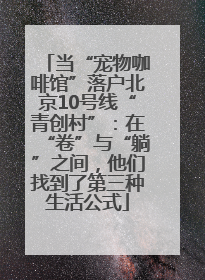 「当“宠物咖
啡馆”落户北
京10号线“
青创村”：在
“卷”与“躺
”之间，他们
找到了第三种
生活公式」